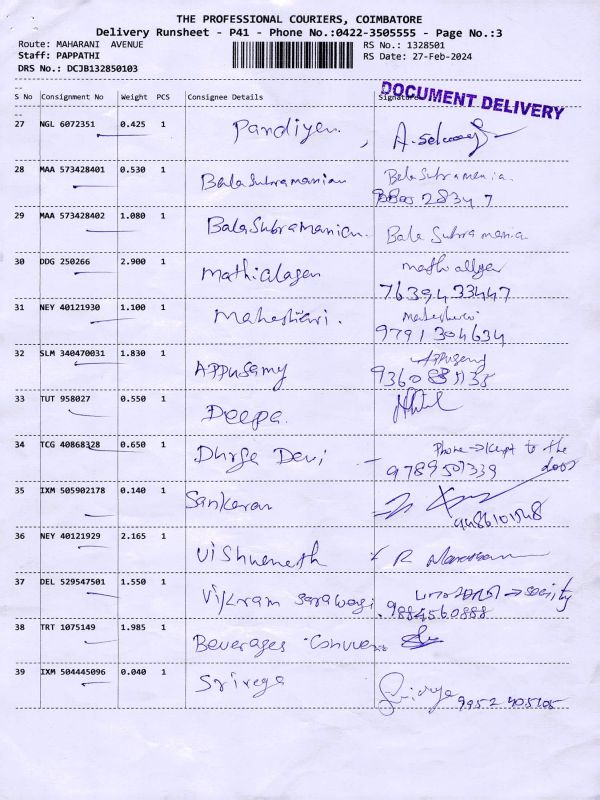 THE PROFESSIONAL COURIERS, COIMBATORE
Delivery Runsheet - P41 - Phone No.:0422-3505555 - Page No.:3
Route: MAHARANI AVENUE RS No.: 1328501
Staff: PAPPATHI RS Date: 27-Feb-2024
DRS No.: DCJB132850103
DOCUMENT DELIVERY
S No Consignment No Weight PCS Consignee Details Signature
27 NGL 6072351 0.425 1 Pandiyan
28 MAA 573428401 0.530 1 BalaSubramanian Bala Subramania
29 MAA 573428402 1.080 1 BalaSubramanian. Bala Subramania
30 DDG 250266 2.900 1 Mathialagan
7639433447
31 NEY 40121930 1.100 1 Maheshwari. Maheshwari
9791304634
32 SLM 340470031 1.830 1 APPusamy Appusamy
33 TUT 958027 0.550 1 Deepa.
34 TCG 40868328 0.650 1 Durga Devi Phone → kept to the
door
9789507339
35 IXM 505902178 0.140 1 Sankaran
36 NEY 40121929 2.165 1 Vishwanath
37 DEL 529547501 1.550 1 Vikram Sarawogi → socity
9884560888
38 TRT 1075149 1.985 1 Beverages
39 IXM 504445096 0.040 1